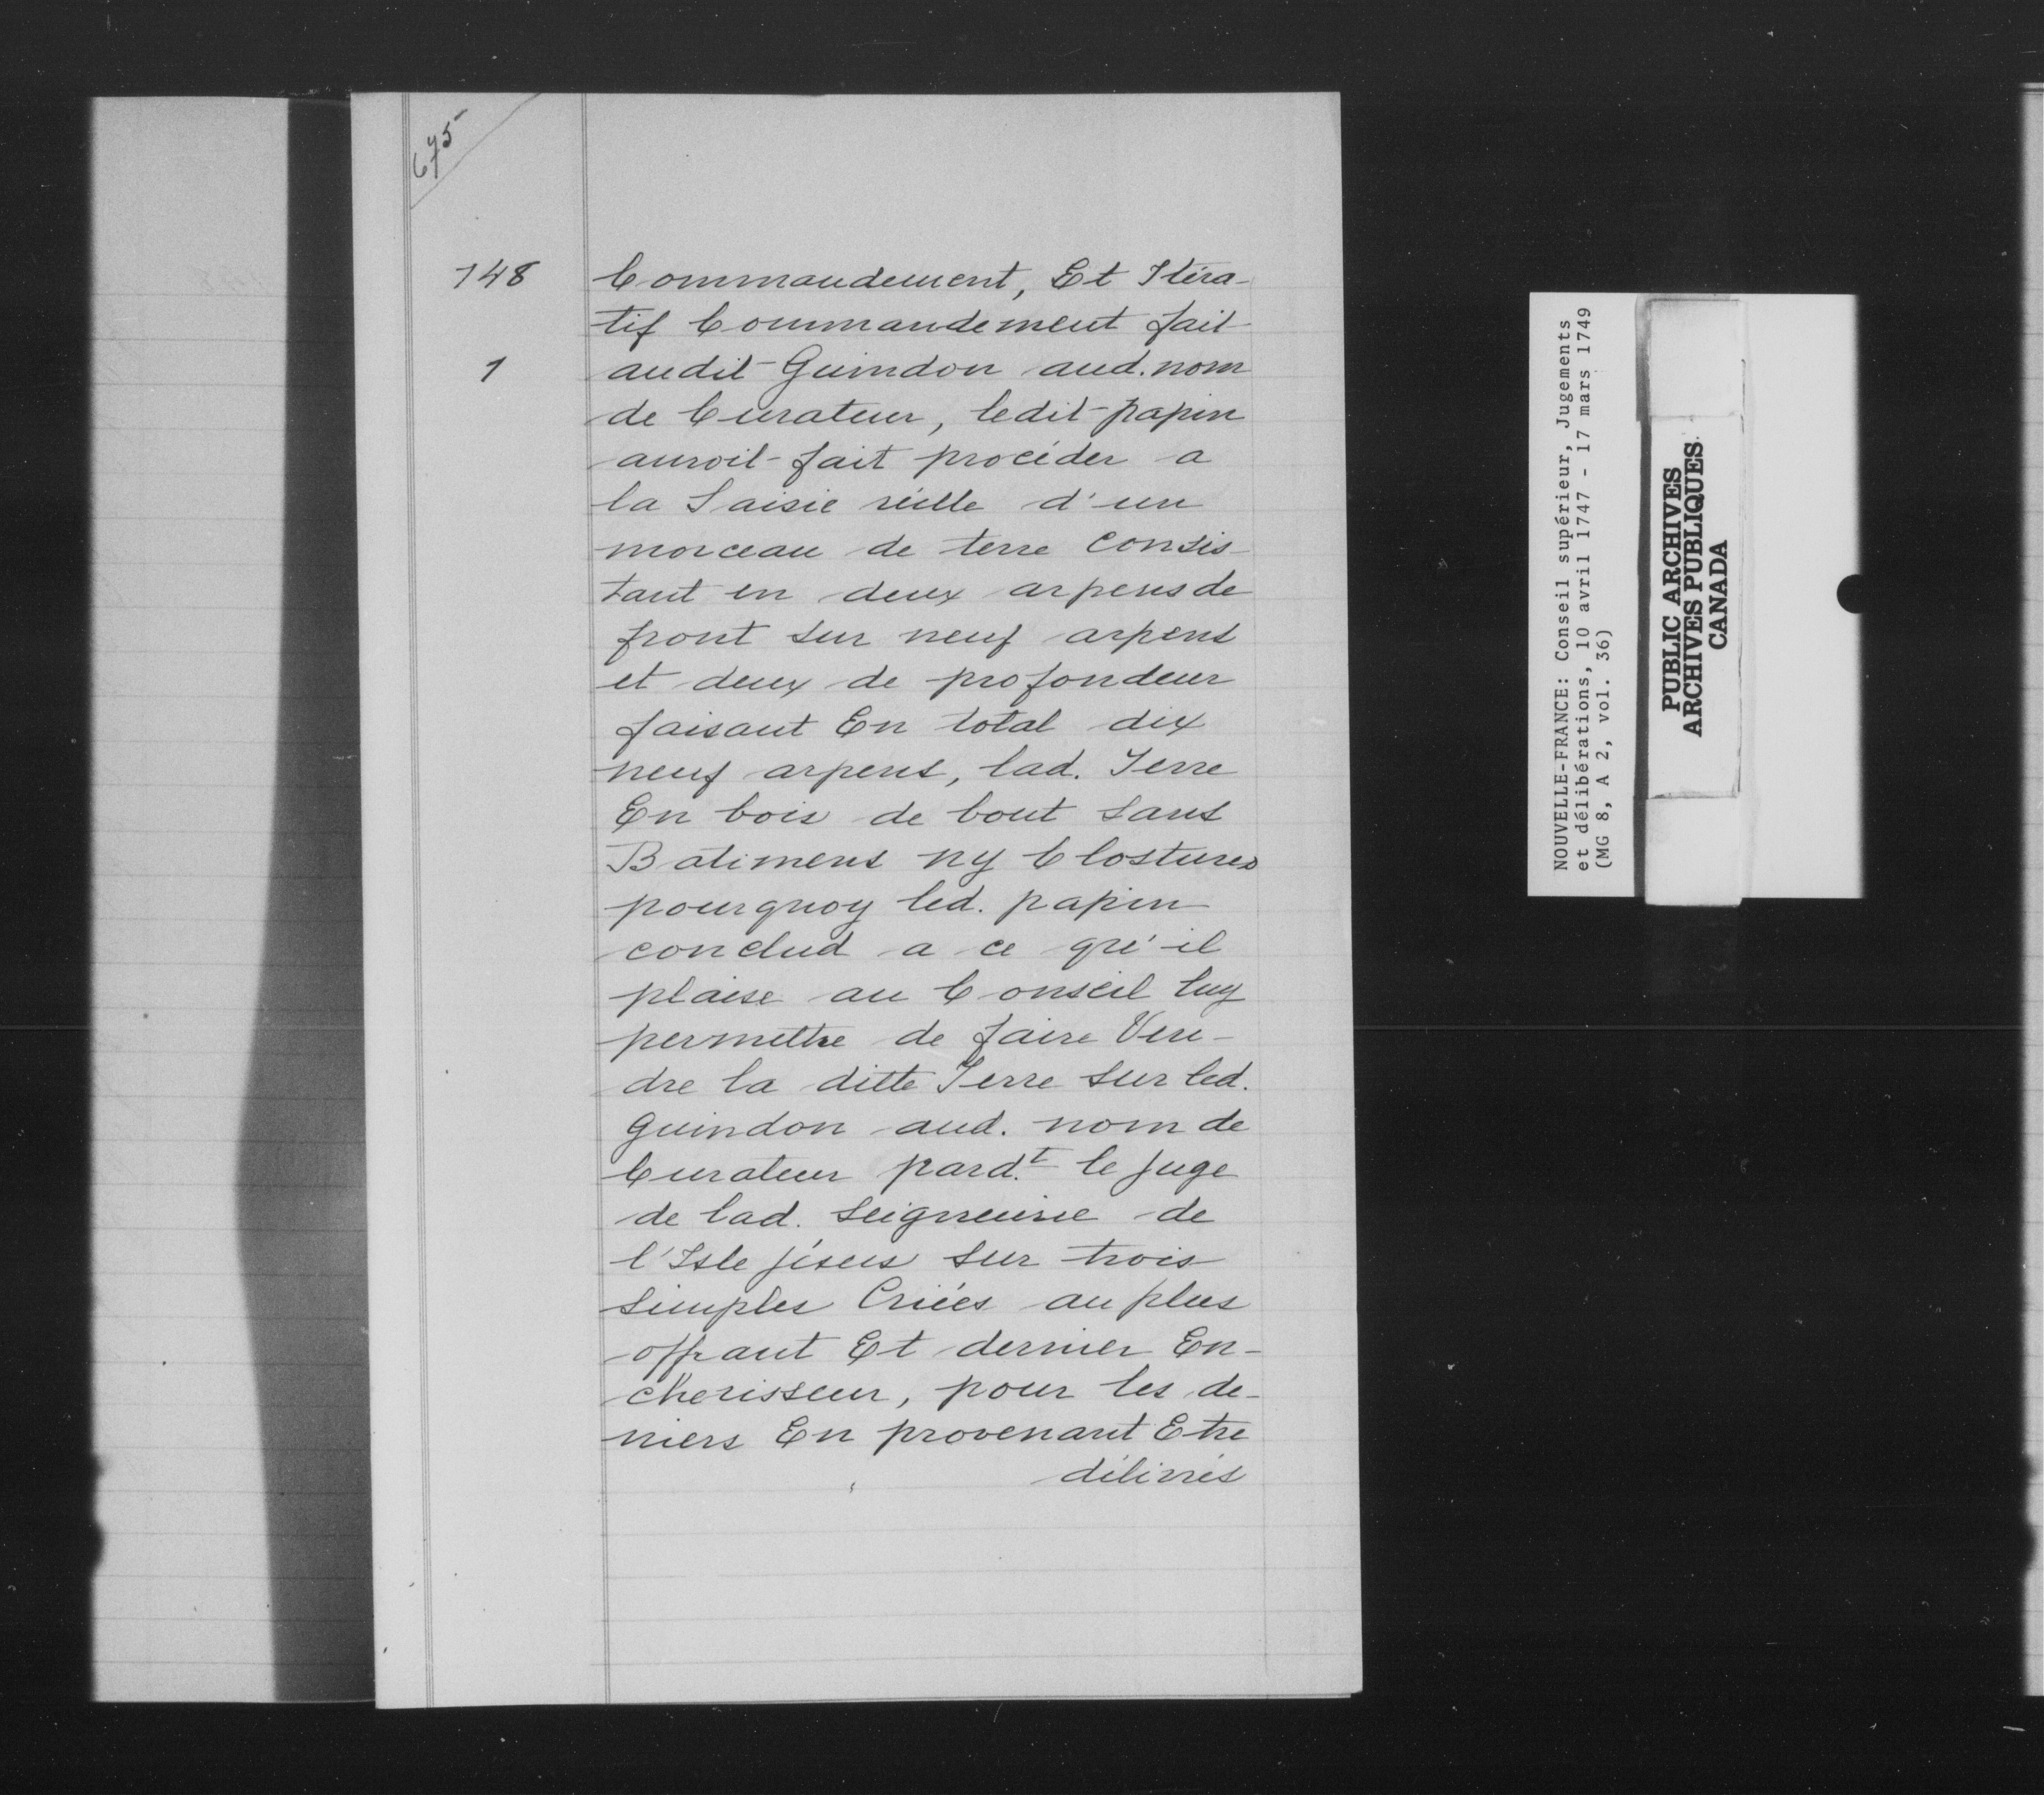 675-
748
1
Commandement, Et Itéra-
tif Commandement fait
audit Guindon aud. nom
de Curateur, ledit papin
auroit fait procéder a
la Saisie réille d'un
morceau de terre consis-
tant en deux arpens de
front sur neuf arpens
et deux de profondeur
faisant En total dix
neuf arpens, lad. Terre
En bois de bout sans
Batimens ny Clostures
pourquoy led. papin
conclud a ce qu'il
plaise au Conseil luy
permettre de faire Ven-
dre la ditte Terre sur led.
Guindon aud. nom de
Curateur pard.t le juge
de lad. Seigneurie de
l'Isle jésus sur trois
simples Criées au plus
offrant Et dernier En-
cherisseur, pour les de-
niers En provenant Etre
délivrés
NOUVELLE-FRANCE: Conseil supérieur, Jugements
et délibérations, 10 avril 1747 - 17 mars 1749
(MG 8, A 2, vol. 36)
PUBLIC ARCHIVES
ARCHIVES PUBLIQUES
CANADA